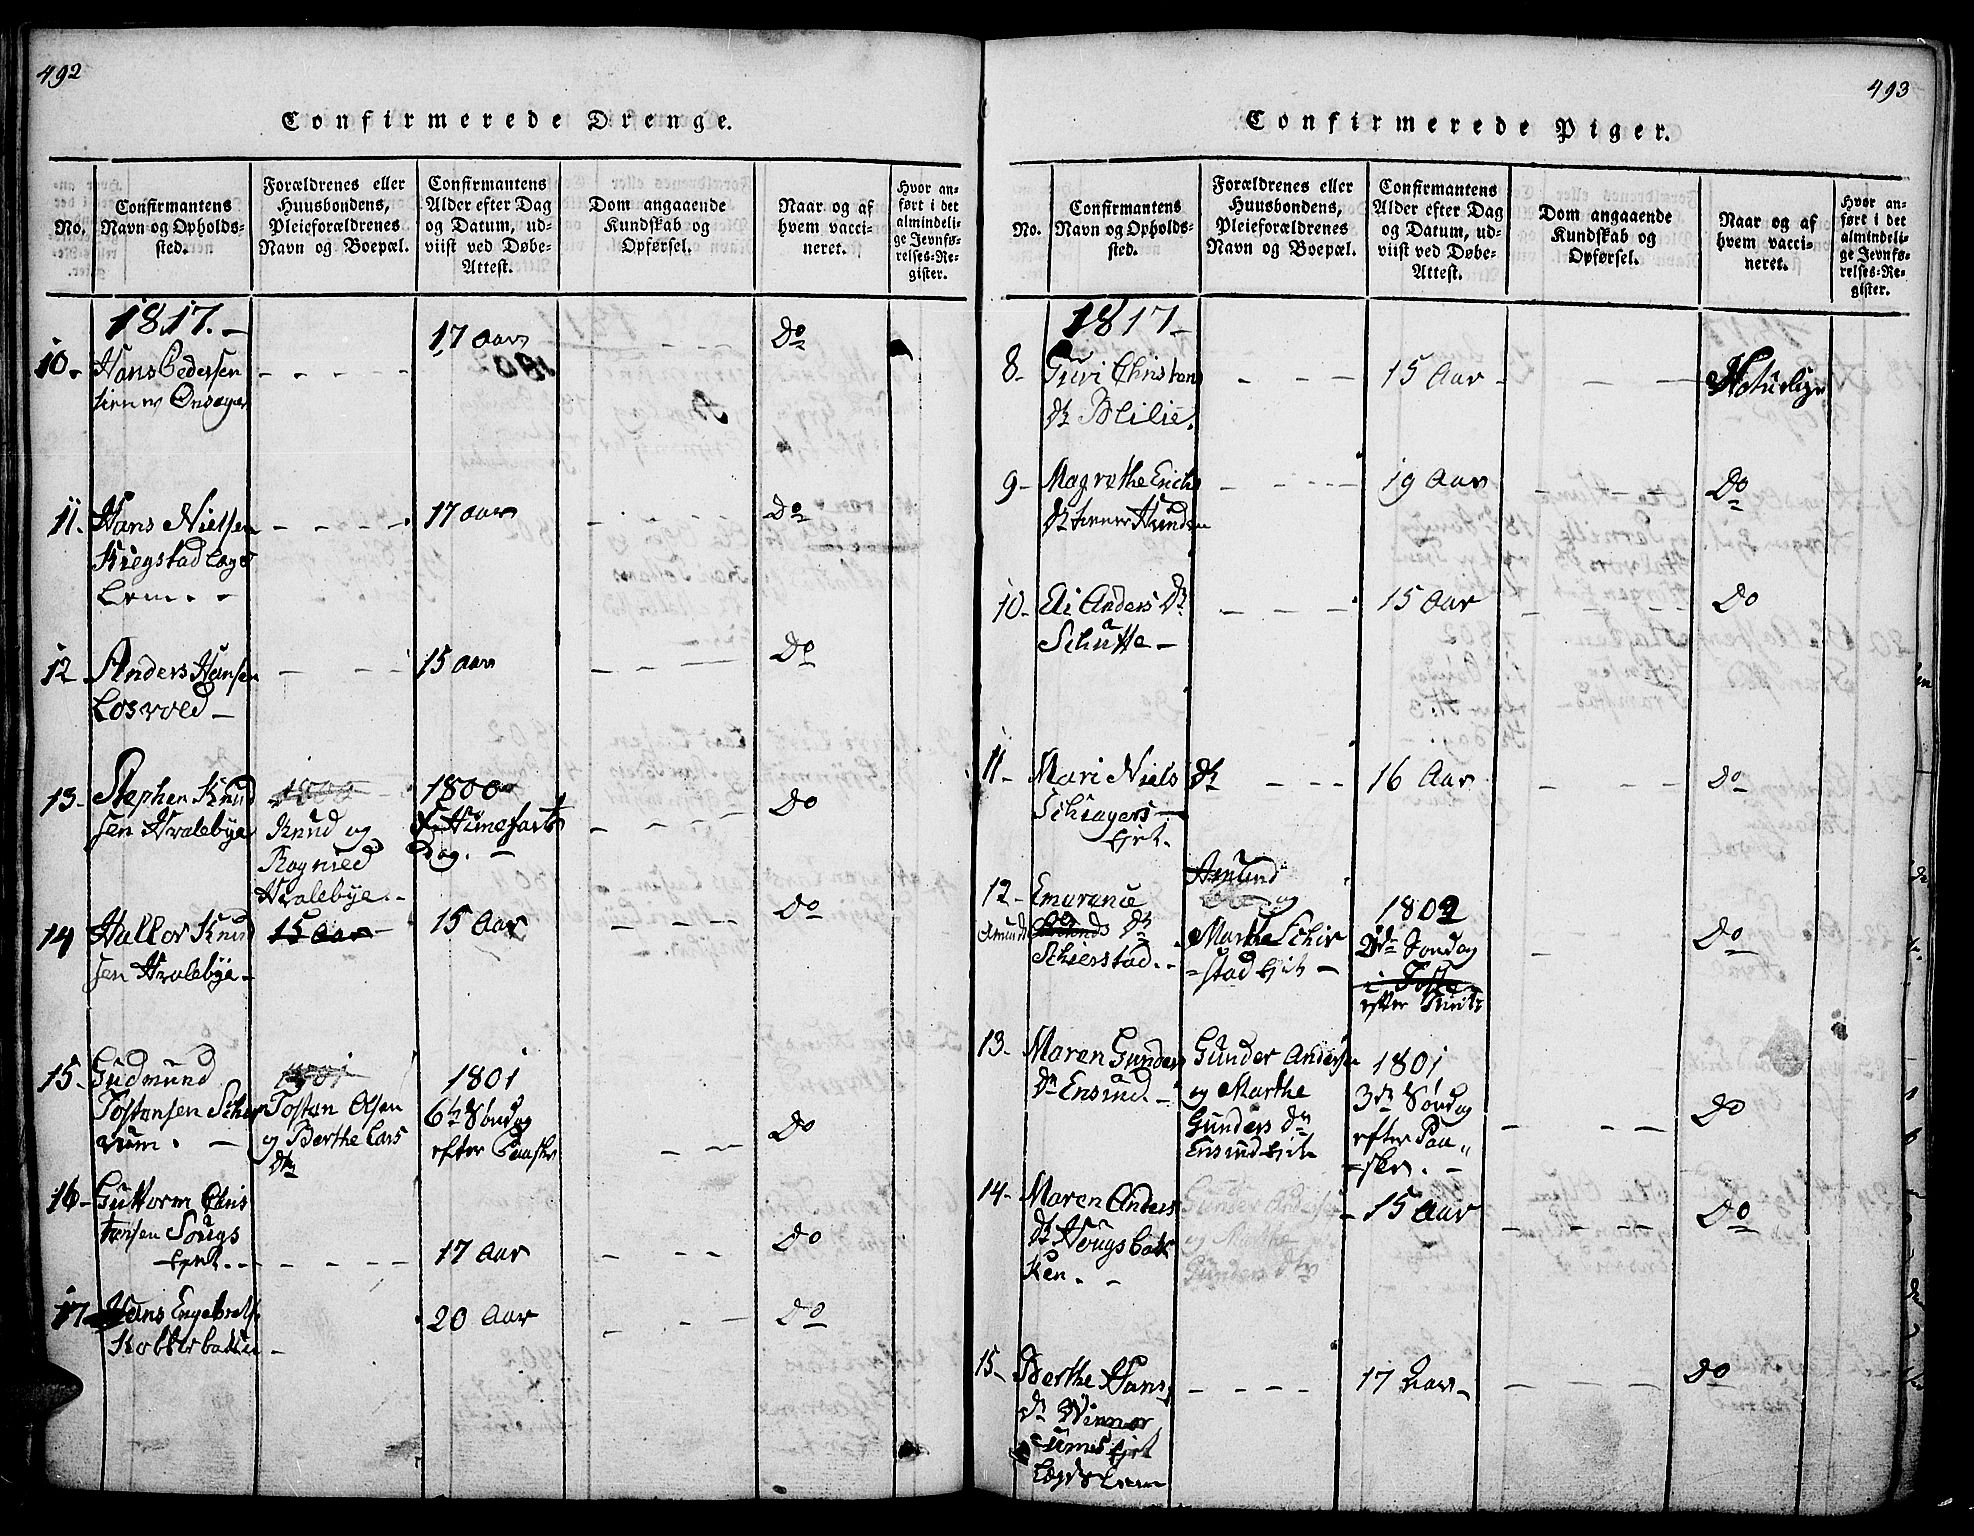 492
Confirmerede Drenge.
No.
Confirmantens
Navn og Opholds-
sted.
Forældrenes eller
Huusbondens,
Pleieforældrenes
Navn og Boepæl.
Confirmantens
Alder efter Dag
og Datum, ud-
viist ved Døbe-
Attest.
Dom angaaende
Kundskab og
Opførsel.
Naar og af
hvem vacci-
neret.
Hvor an-
ført i det
almindeli-
ge Jevnfø-
relses-Re-
gister.
1817.-
10.
Hans Pedersen
tiener Onsager
17 Aar
Do
11.
Hans Nielsen
Kiegstad Lægs
Lem.
17 aar
Do
12
Anders Hansen
Losvold-
15 aar
Do
13-
Stephen Knud
sen Hvalebye
1800
Knud og
Ragnild
Hvalebye.-
1800
Himefarts
Dag.-
Do
14
Hallor Knud
sen Hvalebye-
15 Aar
15 Aar
Do
15-
Gudmund
Tostensen
rum.
1801
Tostan Olsen
og Berthe Lars
Dtr
1801
6te Søndag
efter Paaske
Do
16-
Guttorm Chris
tensen Sougs
Eyet.-
17 Aar
Do
17-
Hans Engebrets.
Kolkerbakken
20 Aar
Do
493
Confirmerede Piger.
No.
Confirmantens
Navn og Opholds-
sted.
Forældrenes eller
Huusbondens,
Pleieforældrenes
Navn og Boepæl.
Confirmantens
Alder efter Dag
og Datum, ud-
viist ved Døbe-
Attest.
Dom angaaende
Kundskab og
Opførsel.
Naar og af
hvem vacci-
neret.
Hvor an-
ført i det
almindeli-
ge Jevnfø-
relses-Re-
gister.
1817-
8-
Guri Christens
Dr Milie.
15 Aar
Naturlige
9-
Magrethe Erichs
Dr tiener Hunden
19 Aar
Do
10-
Eli Anders Dr
Schutte-
15 Aar
Do
11-
Mari Niels Dr
Schiagers-
Ejet.
16 Aar
Do
12-
Emerance
Amunds Dr
Schierstad.-
Amund
og
Marthe Schir
-stad Ejet-
1802
2de Søndag
efter Trinit:
Do
13-
Maren Gunders
Dr Ensrud.-
Gunder Andersen
og Marthe
Gunders Dr
Ensrud Ejet
1801
3de Søndag
efter Paa"
-ske.-
Do
14-
Maren Anders
Dr Hougsbak
ken.-
Gunder Andersen
og Marthe
Gunders Dtr
15 Aar
Do
15-
Berthe Hans
Dr
Ejet
Lægds Lem
17 Aar-
Do